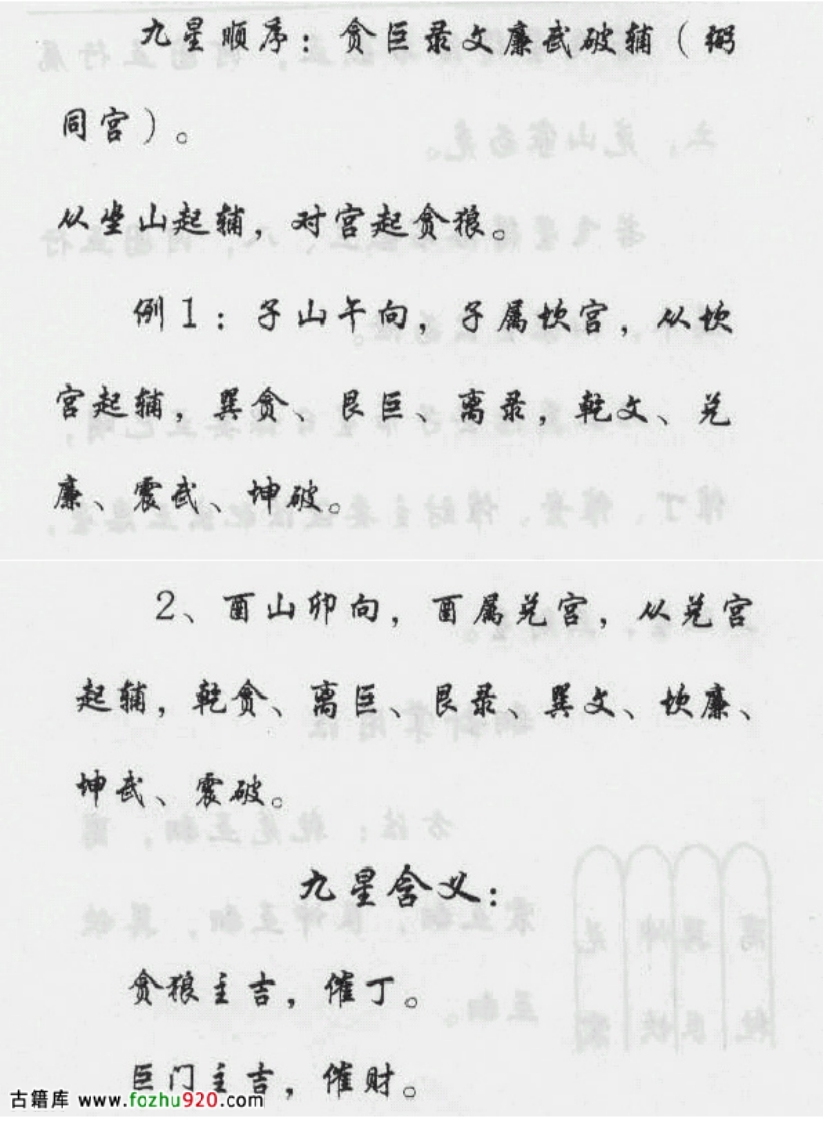 九星顺序：贪巨录文廉武破辅（弼
同宫）。
从坐山起辅，对宫起贪狼。
例1：子山午向，子属坎宫，从坎
宫起辅，巽贪、艮巨、离录，乾文、兑
廉、震武、坤破。
2、酉山卯向，酉属兑宫，从兑宫
起辅，乾贪、离巨、艮录、巽文、坎廉、
坤武、震破。
九星含义：
贪狼主吉，催丁。
巨门主吉，催财。
古籍库 www.fozhu920.com